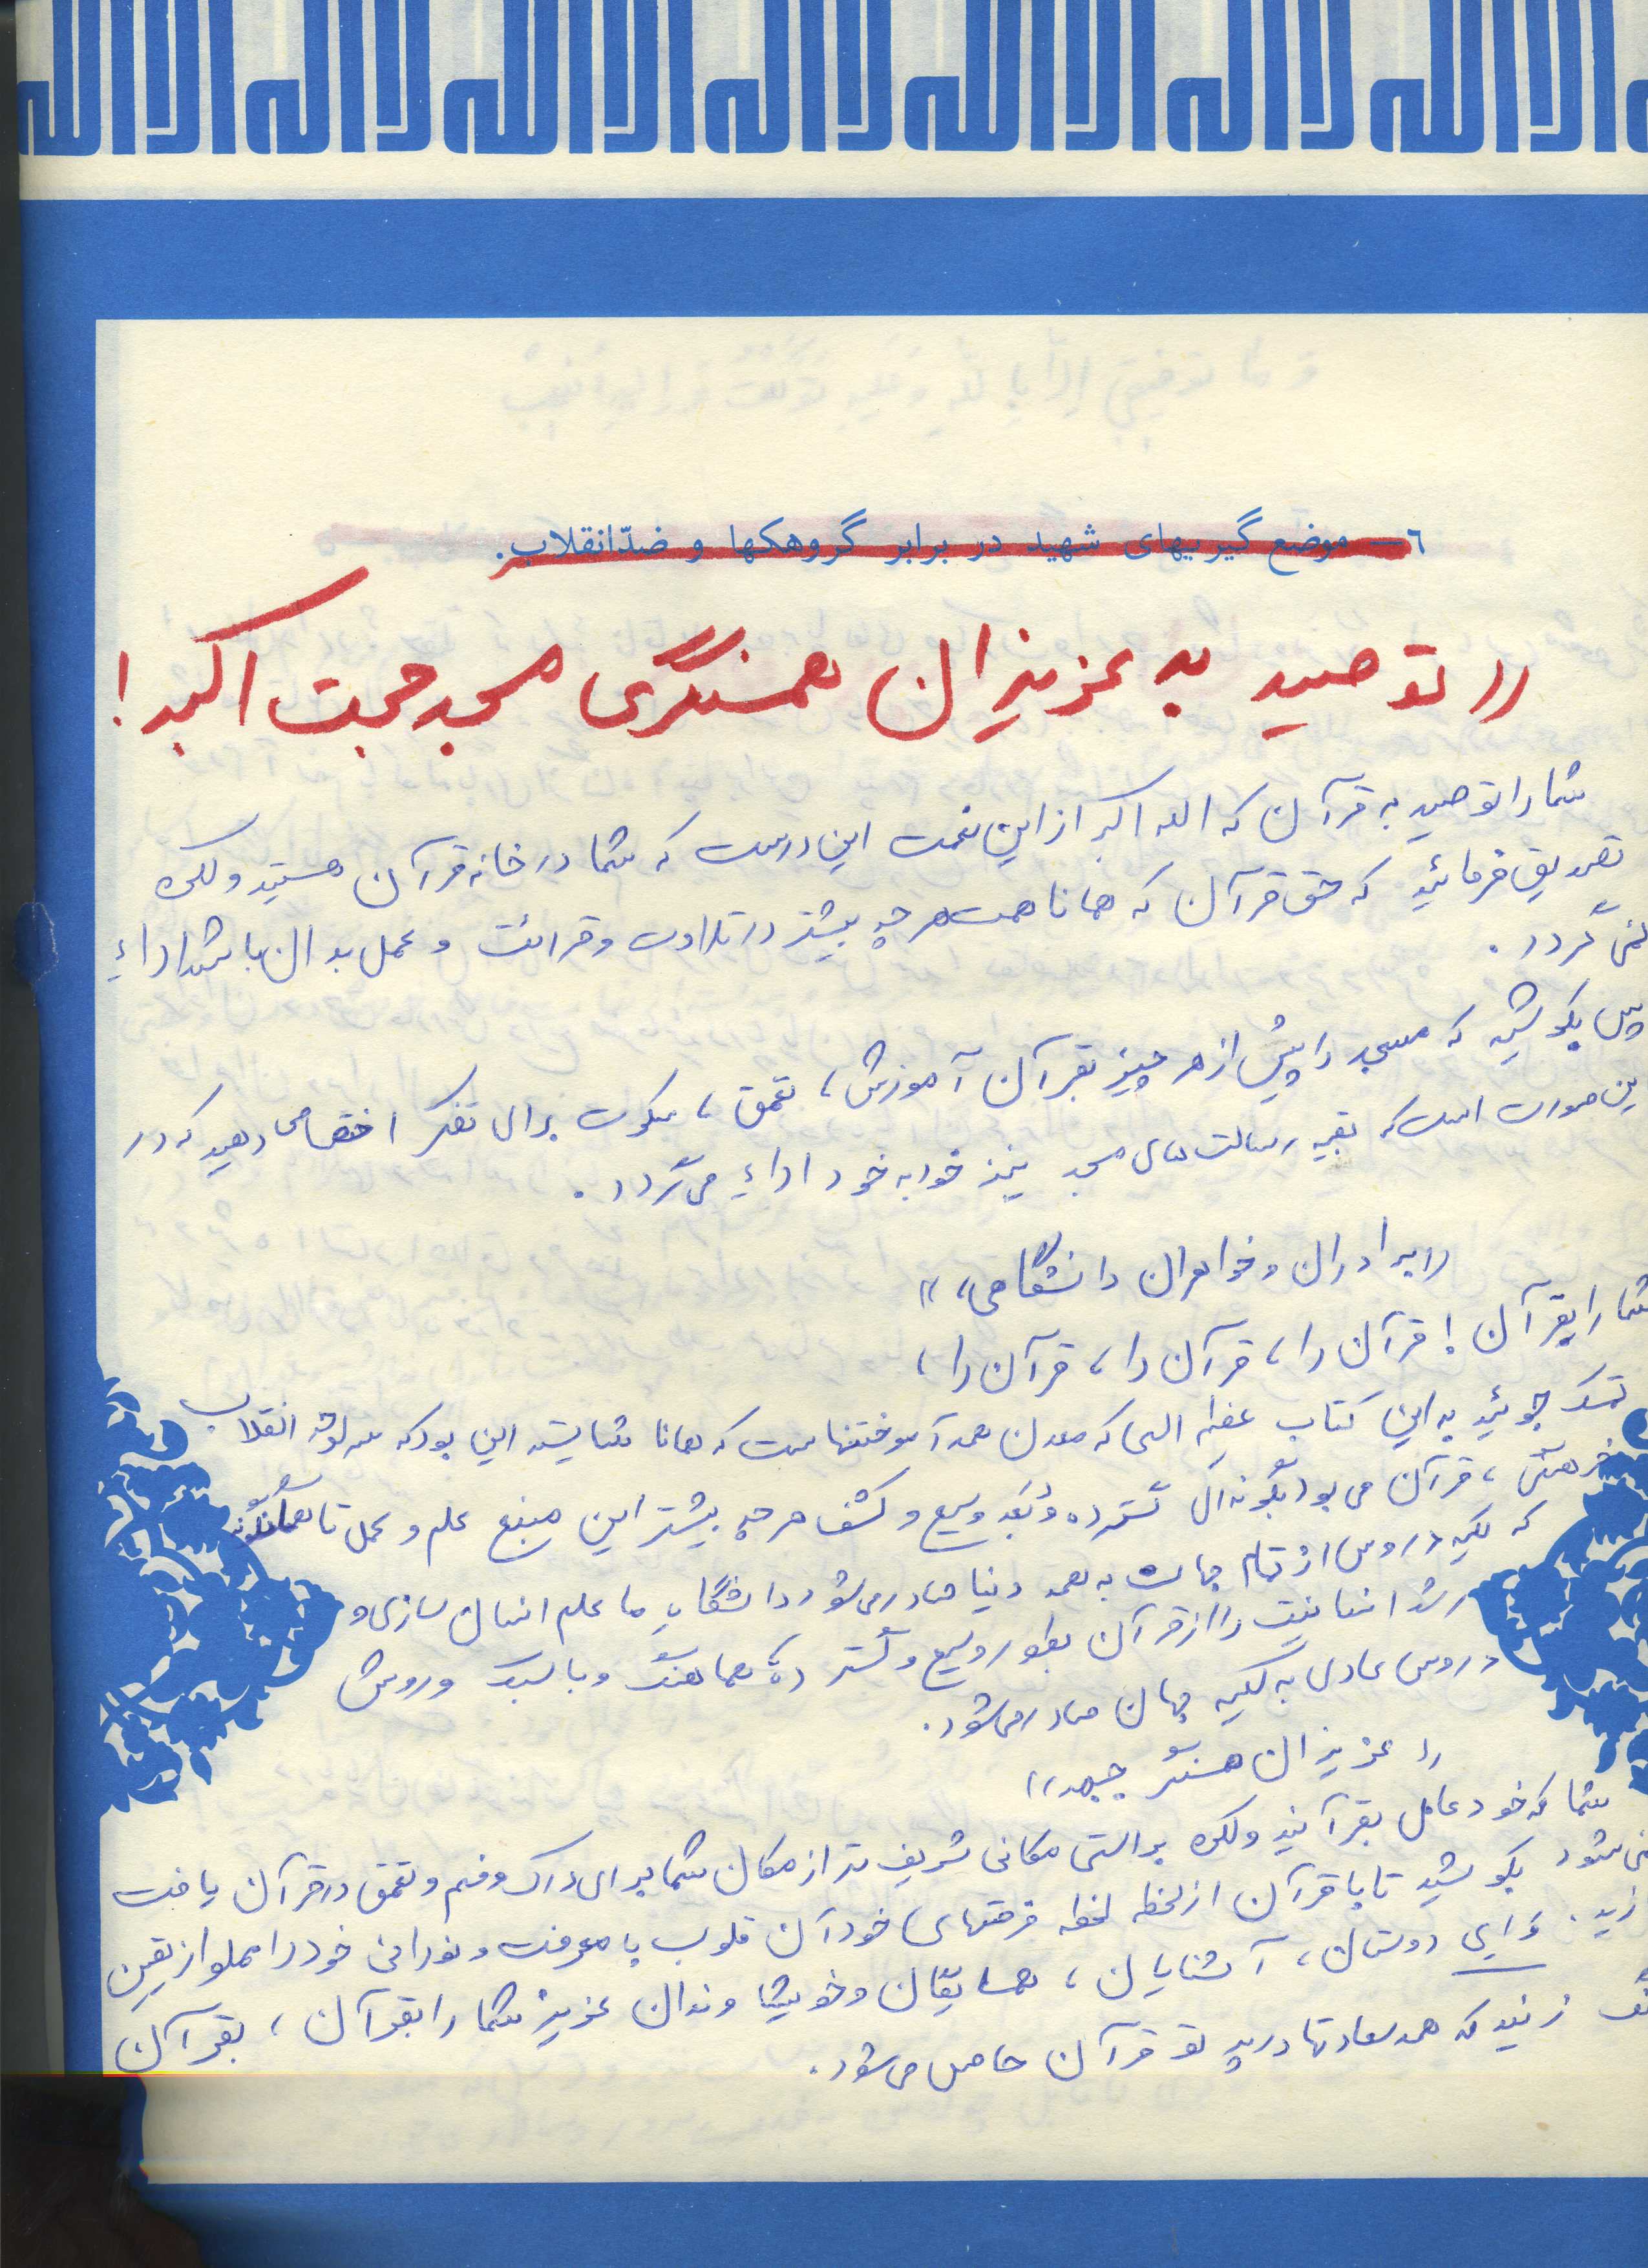 ٦- موضع گیریهای شهید در برابر گروهکها و ضدّانقلاب.
«توصیه به عزیزان همسنگری مسجد حجت اکبر!
شما را توصیه به قرآن که الله اکبر از این نعمت این درست که شما در خانه قرآن هستید ولکن
تصدیق فرمائید که حق قرآن که همانا همت هر چه بیشتر در تلاوت و قرائت و عمل بدان باشد اداء
نمی گردد.
پس بکوشید که مسجد را پیش از هر چیز بقرآن آموزش، تعمق، سکوت برای تفکر اختصاص دهید که در
ین صورت است که بقیه رسالت های مسجد نیز خود به خود اداء می گردد.
«برادران و خواهران دانشگاهی»
شما را بقرآن! قرآن را، قرآن را، قرآن را،
تمسک جوئید به این کتاب عظیم الهی که معدن همه آموختنهاست که همانا شایسته این بود که سرلوحه انقلاب
فرهنگی، قرآن می بود بگونه ای گسترده و بُعد وسیع و کشف هر چه بیشتر این منبع علم و عمل تا همانگونه
که کلیه دروس از تمام جهات به همه دنیا صادر می شود دانشگاه ما علم انسان سازی و
رشد انسانیت را از قرآن بطور وسیع و گسترده هماهنگ و با سبک و روش
دروس عادی به کلیه جهان صادر می شود.
«عزیزان همسنگر جبهه»
شما که خود عامل بقرآنید ولکن براستی مکانی شریف تر از مکان شما برای درک و فهم و تعمق در قرآن یافت
نمی شود بکوشید تا با قرآن از لحظه لحظه فرصتهای خود آن قلوب با معرفت و نورانی خود را مملو از یقین
زید. وَ ای دوستان، آشنایان، همسایگان و خویشاوندان عزیز شما را بقرآن، بقرآن
نگ زنید که همه سعادتها در پرتو قرآن حاصل می شود.